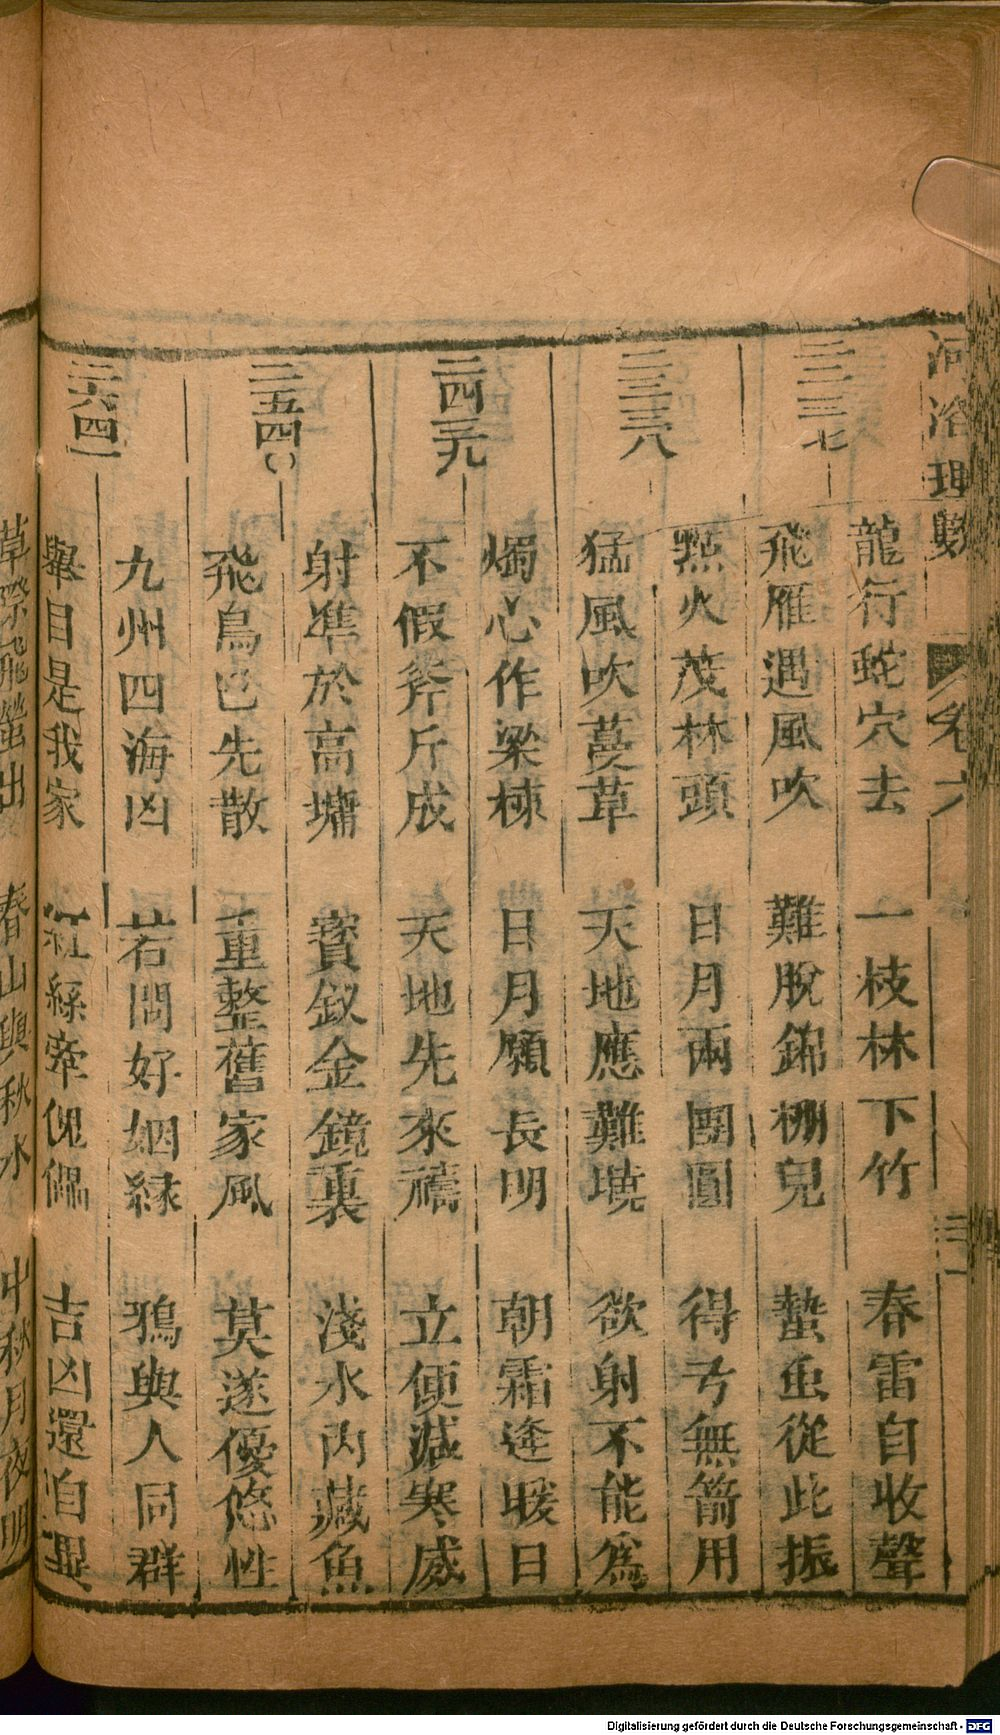 河洛理數
卷六
龍行蛇穴去　一枝林下竹　春雷自收聲
三二三七
飛雁遇風吹　難脫錦棚兒　蟄虫從此振
㷱火茂林頭　日月兩團圓　得亐無箭用
三三三八
猛風吹蔓草　天地應難境　欲射不能爲
燭心作梁棟　日月願長明　朝霜逢暖日
三四三九
不假斧斤成　天地先來禱　立便減寒威
射準於高墉　寶釵金鏡裏　淺水內藏魚
三五四〇
飛鳥巳先散　重整舊家風　莫遂優悠性
九州四海凶　若問好姻緣　鴉與人同群
三六四一
舉目是我家　紅絲牽傀儡　吉凶還自
出　春山與秋水　中秋月夜明
Digitalisierung gefördert durch die Deutsche Forschungsgemeinschaft - DFG